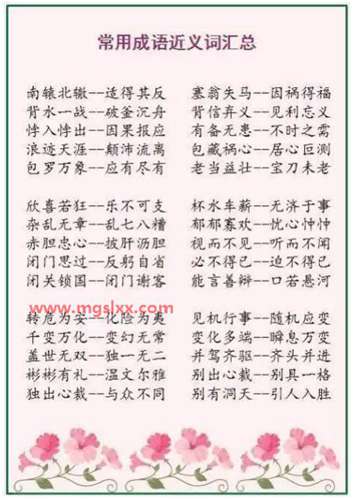 常用成语近义词汇总
南辕北辙--适得其反 塞翁失马--因祸得福
背水一战--破釜沉舟 背信弃义--见利忘义
悖入悖出--因果报应 有备无患--不时之需
浪迹天涯--颠沛流离 包藏祸心--居心叵测
包罗万象--应有尽有 老当益壮--宝刀未老
欣喜若狂--乐不可支 杯水车薪--无济于事
杂乱无章--乱七八糟 郁郁寡欢--忧心忡忡
赤胆忠心--披肝沥胆 视而不见--听而不闻
闭门思过--反躬自省 必不得已--迫不得已
闭关锁国--闭门谢客 能言善辩--口若悬河
www.mgslxx.com
转危为安--化险为夷 见机行事--随机应变
千变万化--变幻无常 变化多端--瞬息万变
盖世无双--独一无二 并驾齐驱--齐头并进
彬彬有礼--温文尔雅 别出心裁--别具一格
独出心裁--与众不同 别有洞天--引人入胜